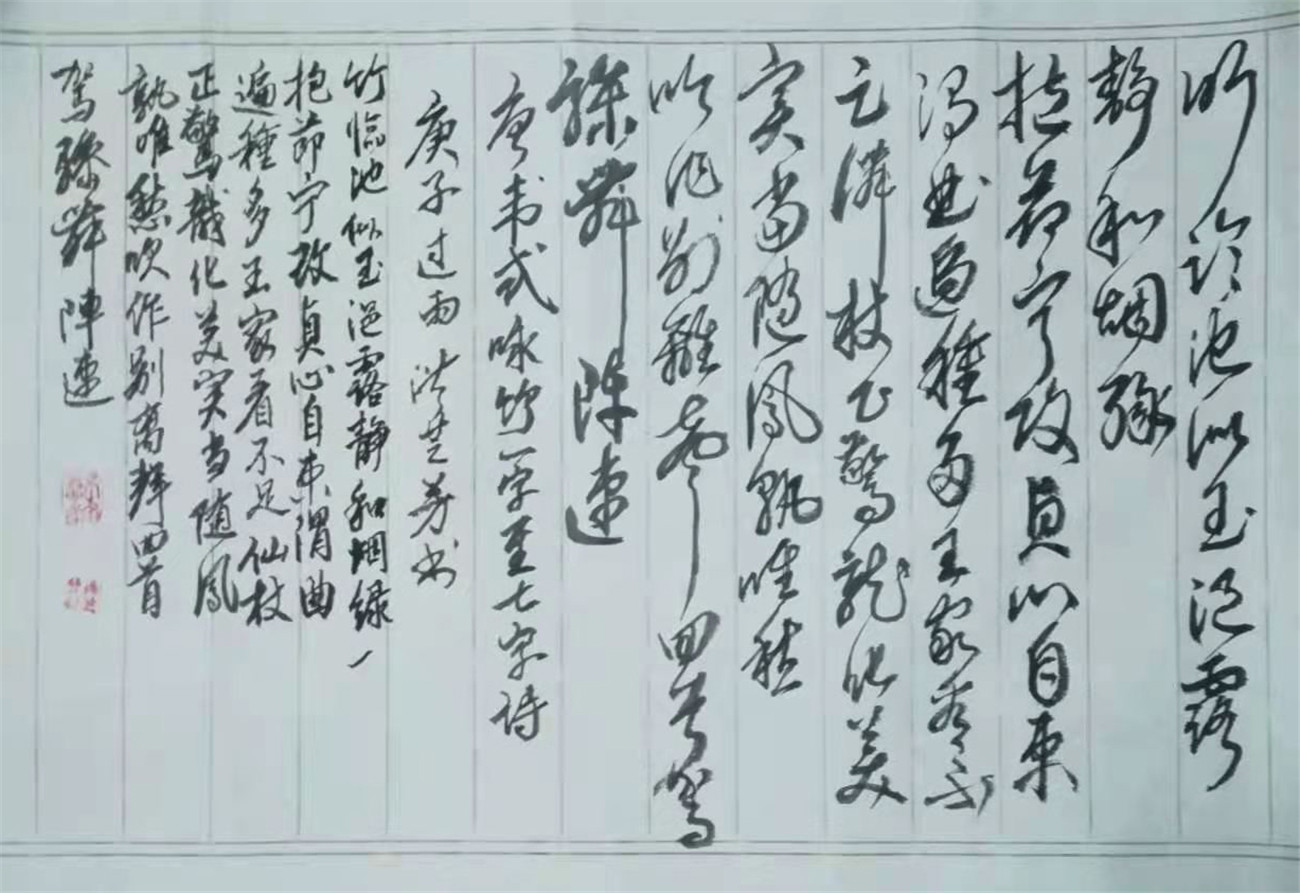 竹临池似玉浥露
静和烟绿
抱节宁改贞心自束
渭曲遍種多王家看不
足仙杖正驚龍化美
实当随凤孰唯愁
吹作别離声回首驾
骖舞阵速
唐韦式咏竹一字至七字诗
庚子过雨 芝芳书
竹临池似玉浥露静和烟绿一
抱节宁改贞心自束渭曲
遍種多王家看不足仙杖
正驚龍化美实当随鳳
孰唯愁吹作别离声回首
驾骖舞陣速